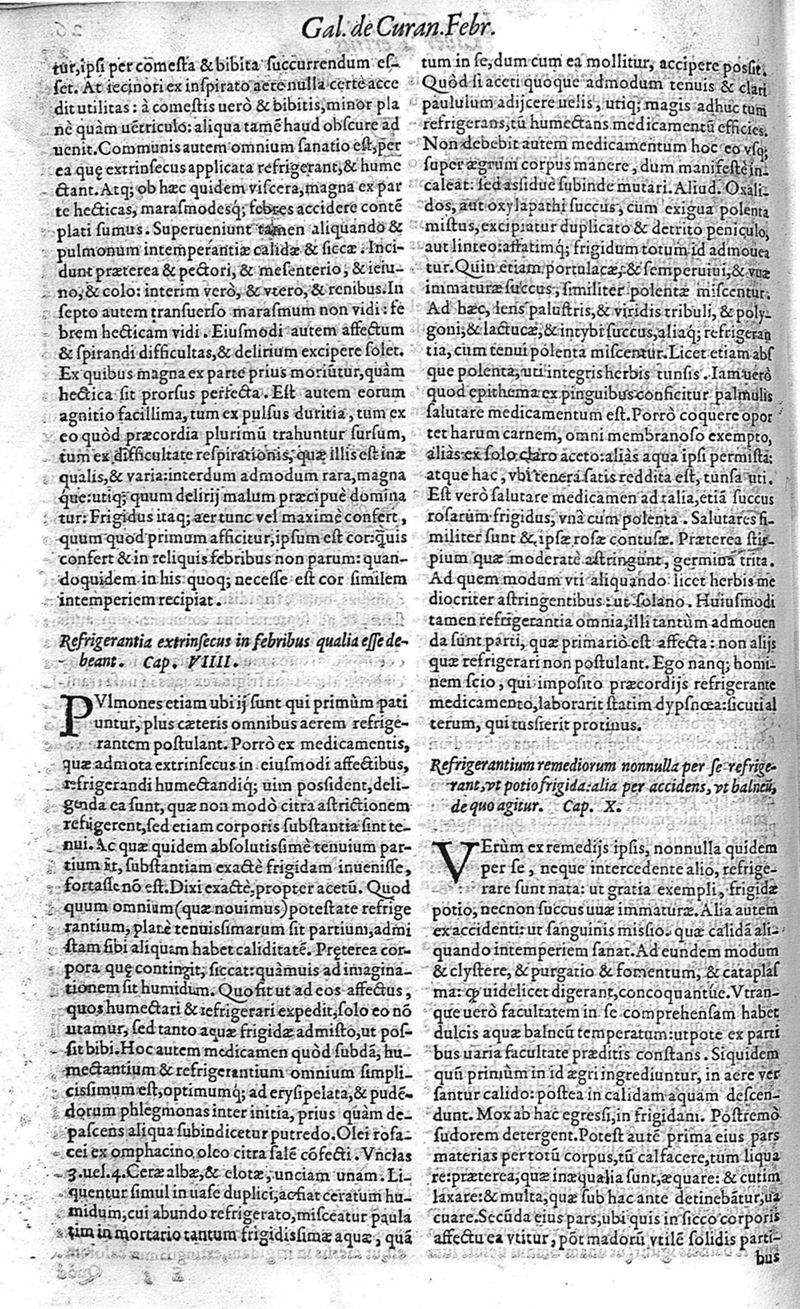 Gal. de Curan. Febr.
tur, ipsi per comesta & bibita succurrendum es-
set. At iecinori ex inspirato aere nulla certè acce
dit utilitas: à comestis uerò & bibitis, minor pla
nè quàm uẽtriculo: aliqua tamẽ haud obscure ad
uenit. Communis autem omnium sanatio est, per
ea quę extrinsecus applicata refrigerant, & hume
ctant. Atq; ob hæc quidem viscera, magna ex par
te hecticas, marasmodesq; febres accidere contẽ
plati sumus. Superueniunt tamen aliquando &
pulmonum intemperantiæ calidæ & siccæ. Inci-
dunt præterea & pectori, & mesenterio, & ieiu-
no, & colo: interim verò, & vtero, & renibus. In
septo autem transuerso marasmum non vidi: fe
brem hecticam vidi. Eiusmodi autem affectum
& spirandi difficultas, & delirium excipere solet.
Ex quibus magna ex parte prius moriũtur, quàm
hectica sit prorsus perfecta. Est autem eorum
agnitio facillima, tum ex pulsus duritia, tum ex
eo quòd præcordia plurimũ trahuntur sursum,
tum ex difficultate respirationis, quæ illis est inæ
qualis, & varia: interdum admodum rara, magna
que: utiq; quum delirij malum præcipuè domina
tur: Frigidus itaq; aer tunc vel maximè confert,
quum quod primum afficitur, ipsum est cor: quis
confert & in reliquis febribus non parum: quan-
doquidem in his quoq; necesse est cor similem
intemperiem recipiat.
Refrigerantia extrinsecus in febribus qualia esse de-
beant. Cap. VIIII.
PVlmones etiam ubi ij sunt qui primùm pati
untur, plus cæteris omnibus aerem refrige-
rantem postulant. Porrò ex medicamentis,
quæ admota extrinsecus in eiusmodi affectibus,
refrigerandi humectandiq; uim possident, deli-
genda ea sunt, quæ non modò citra astrictionem
refrigerent, sed etiam corporis substantia sint te-
nui. Ac quæ quidem absolutissimè tenuium par-
tium sit, substantiam exactè frigidam inuenisse,
fortasse nõ est. Dixi exactè, propter acetũ. Quod
quum omnium (quæ nouimus) potestate refrige
rantium, planè tenuissimarum sit partium, admi
stam sibi aliquam habet caliditatẽ. Pręterea cor-
pora quę contingit, siccat: quámuis ad imagina-
tionem sit humidum. Quo fit ut ad eos affectus,
quos humectari & refrigerari expedit, solo eo nõ
utamur, sed tanto aquæ frigidæ admisto, ut pos-
sit bibi. Hoc autem medicamen quòd subdã, hu-
mectantium & refrigerantium omnium simpli-
cissimum est, optimumq; ad erysipelata, & pudẽ-
dorum phlegmonas inter initia, prius quàm de-
pascens aliqua subindicetur putredo. Olei rosa-
cei ex omphacino oleo citra salẽ cõfecti. Vncias
3. uel. 4. Ceræ albæ, & elotæ, unciam unam. Li-
quentur simul in uase duplici, ac fiat ceratum hu-
midum, cui abundo refrigerato, misceatur paula
tim in mortario tantum frigidissimæ aquæ, quã
tum in se, dum cum ea mollitur, accipere possit.
Quòd si aceti quoque admodum tenuis & clari
paululum adijcere uelis, utiq; magis adhuc tum
refrigerans, tũ humectans medicamentũ efficies.
Non debebit autem medicamentum hoc eo vsq;
super ægrum corpus manere, dum manifestè in-
caleat: sed assiduè subinde mutari. Aliud. Oxali-
dos, aut oxylapathi succus, cum exigua polenta
mistus, excipiatur duplicato & detrito peniculo,
aut linteo: affatimq; frigidum totum id admouea
tur. Quin etiam portulacæ, & semperuiui, & vuæ
immaturæ succus, similiter polentæ miscentur.
Ad hæc, lens palustris, & viridis tribuli, & poly-
goni, & lactucæ, & intybi succus, aliaq; refrigeran
tia, cum tenui polenta miscentur. Licet etiam abs
que polenta, uti integris herbis tunsis. Iam uerò
quod epithema ex pinguibus conficitur palmulis
salutare medicamentum est. Porrò coquere opor
tet harum carnem, omni membranoso exempto,
aliàs ex solo claro aceto: aliàs aqua ipsi permista:
atque hac, vbi tenera satis reddita est, tunsa uti.
Est verò salutare medicamen ad talia, etiã succus
rosarum frigidus, vnà cum polenta. Salutares si-
militer sunt & ipsæ rosæ contusæ. Præterea stir-
pium quæ moderatè astringunt, germina trita.
Ad quem modum vti aliquando licet herbis me
diocriter astringentibus: ut solano. Huiusmodi
tamen refrigerantia omnia, illi tantùm admouen
da sunt parti, quæ primariò est affecta: non alijs
quæ refrigerari non postulant. Ego nanq; homi-
nem scio, qui imposito præcordijs refrigerante
medicamento, laborarit statim dypsnœa: sicuti al
terum, qui tussierit protinus.
Refrigerantium remediorum nonnulla per se refrige-
rant, vt potio frigida: alia per accidens, vt balneũ,
de quo agitur. Cap. X.
VErùm ex remedijs ipsis, nonnulla quidem
per se, neque intercedente alio, refrige-
rare sunt nata: ut gratia exempli, frigida
potio, necnon succus uuæ immaturæ. Alia autem
ex accidenti: ut sanguinis missio. quæ calidã ali-
quando intemperiem sanat. Ad eundem modum
& clystere, & purgatio & fomentum, & cataplas
ma: ꝙ uidelicet digerant, concoquantúe. Vtran-
que uerò facultatem in se comprehensam habet
dulcis aquæ balneũ temperatum: utpote ex parti
bus uaria facultate præditis constans. Siquidem
quũ primùm in id ægri ingrediuntur, in aere ver
santur calido: postea in calidam aquam descen-
dunt. Mox ab hac egressi, in frigidani. Postremò
sudorem detergent. Potest autẽ prima eius pars
materias per totũ corpus, tũ calfacere, tum liqua
re: præterea, quæ inæqualia sunt, æquare: & cutim
laxare: & multa, quæ sub hac ante detinebãtur, ua
cuare. Secũda eius pars, ubi quis in sicco corporis
affectu ea vtitur, põt madorũ vtilẽ solidis parti-
bus